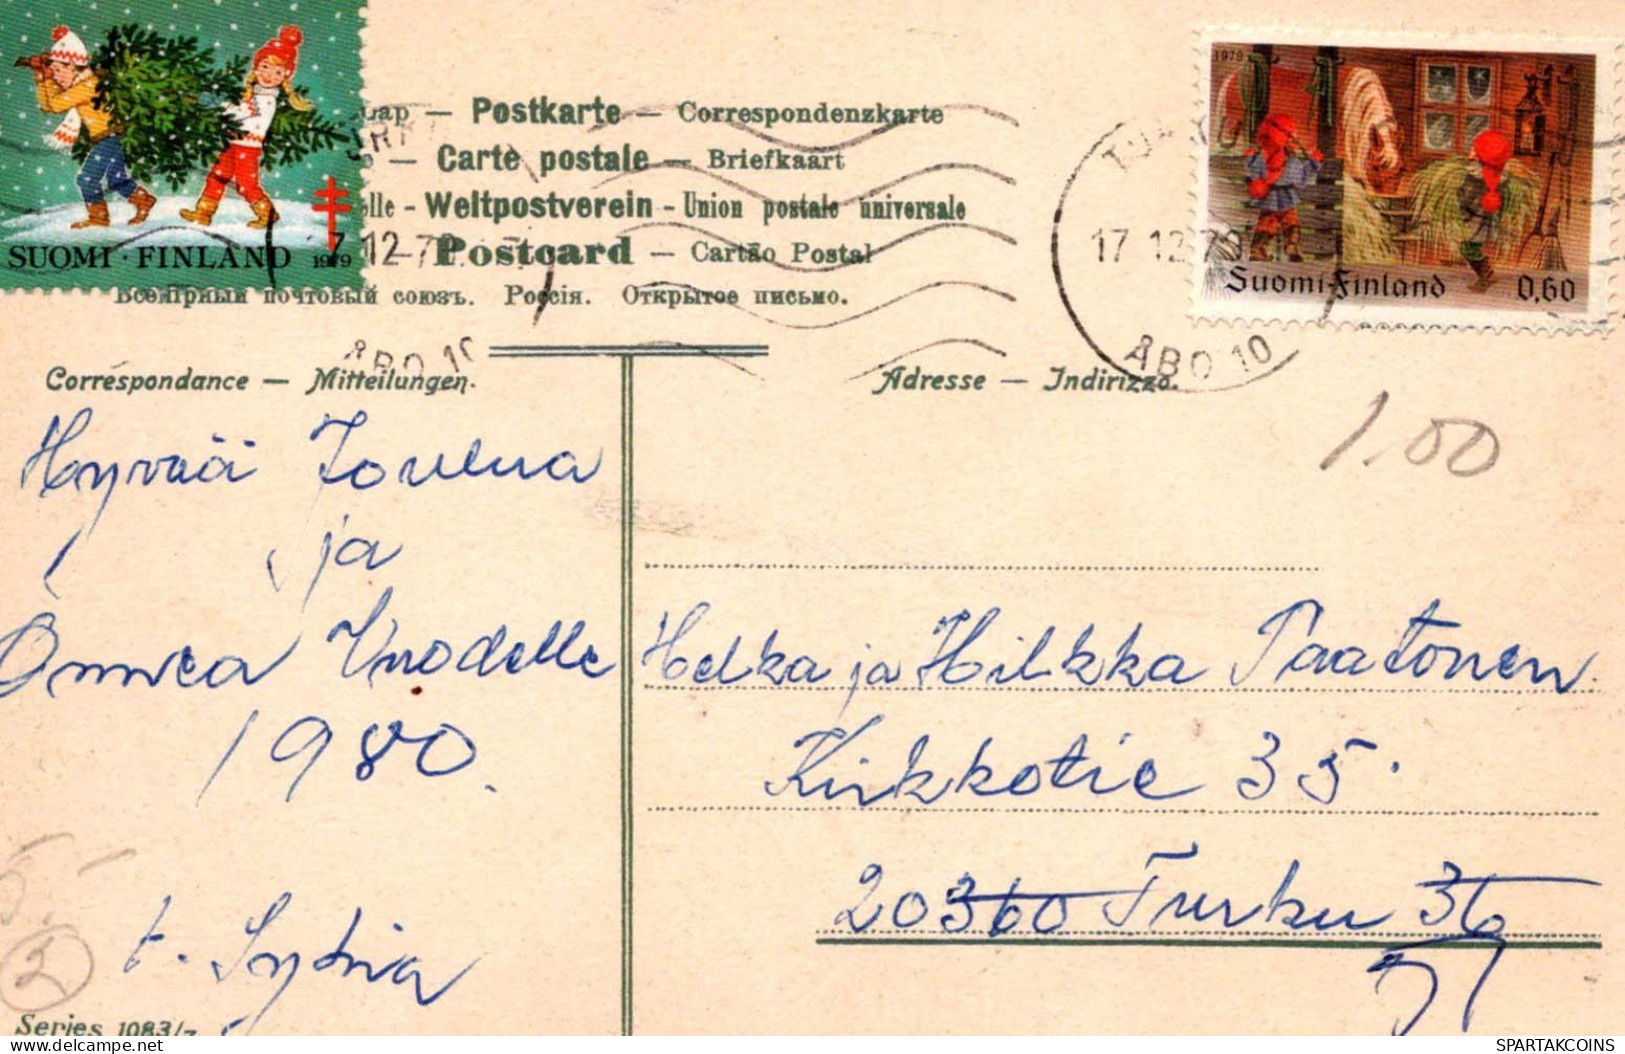 SUOMI · FINLAND 1979
Lap — Postkarte — Correspondenzkarte
— Carte postale — Briefkaart
elle - Weltpostverein - Union postale universale
— Postcard — Cartão Postal
Всемірный почтовый союзъ. Россія. Открытое письмо.
12.79
ÅBO 10
TURKU
17.12.79
ÅBO 10
1979
Suomi-Finland 0,60
Correspondance — Mitteilungen.
Adresse — Indirizzo.
1.00
Hyvää Joulua
ja
Onnea Vuodelle
1980.
t. Sylvia
2
Series 1083/7
Helka ja Hilkka Paatonen
Kirkkotie 35.
20360 Turku 36
SPARTAKCOINS